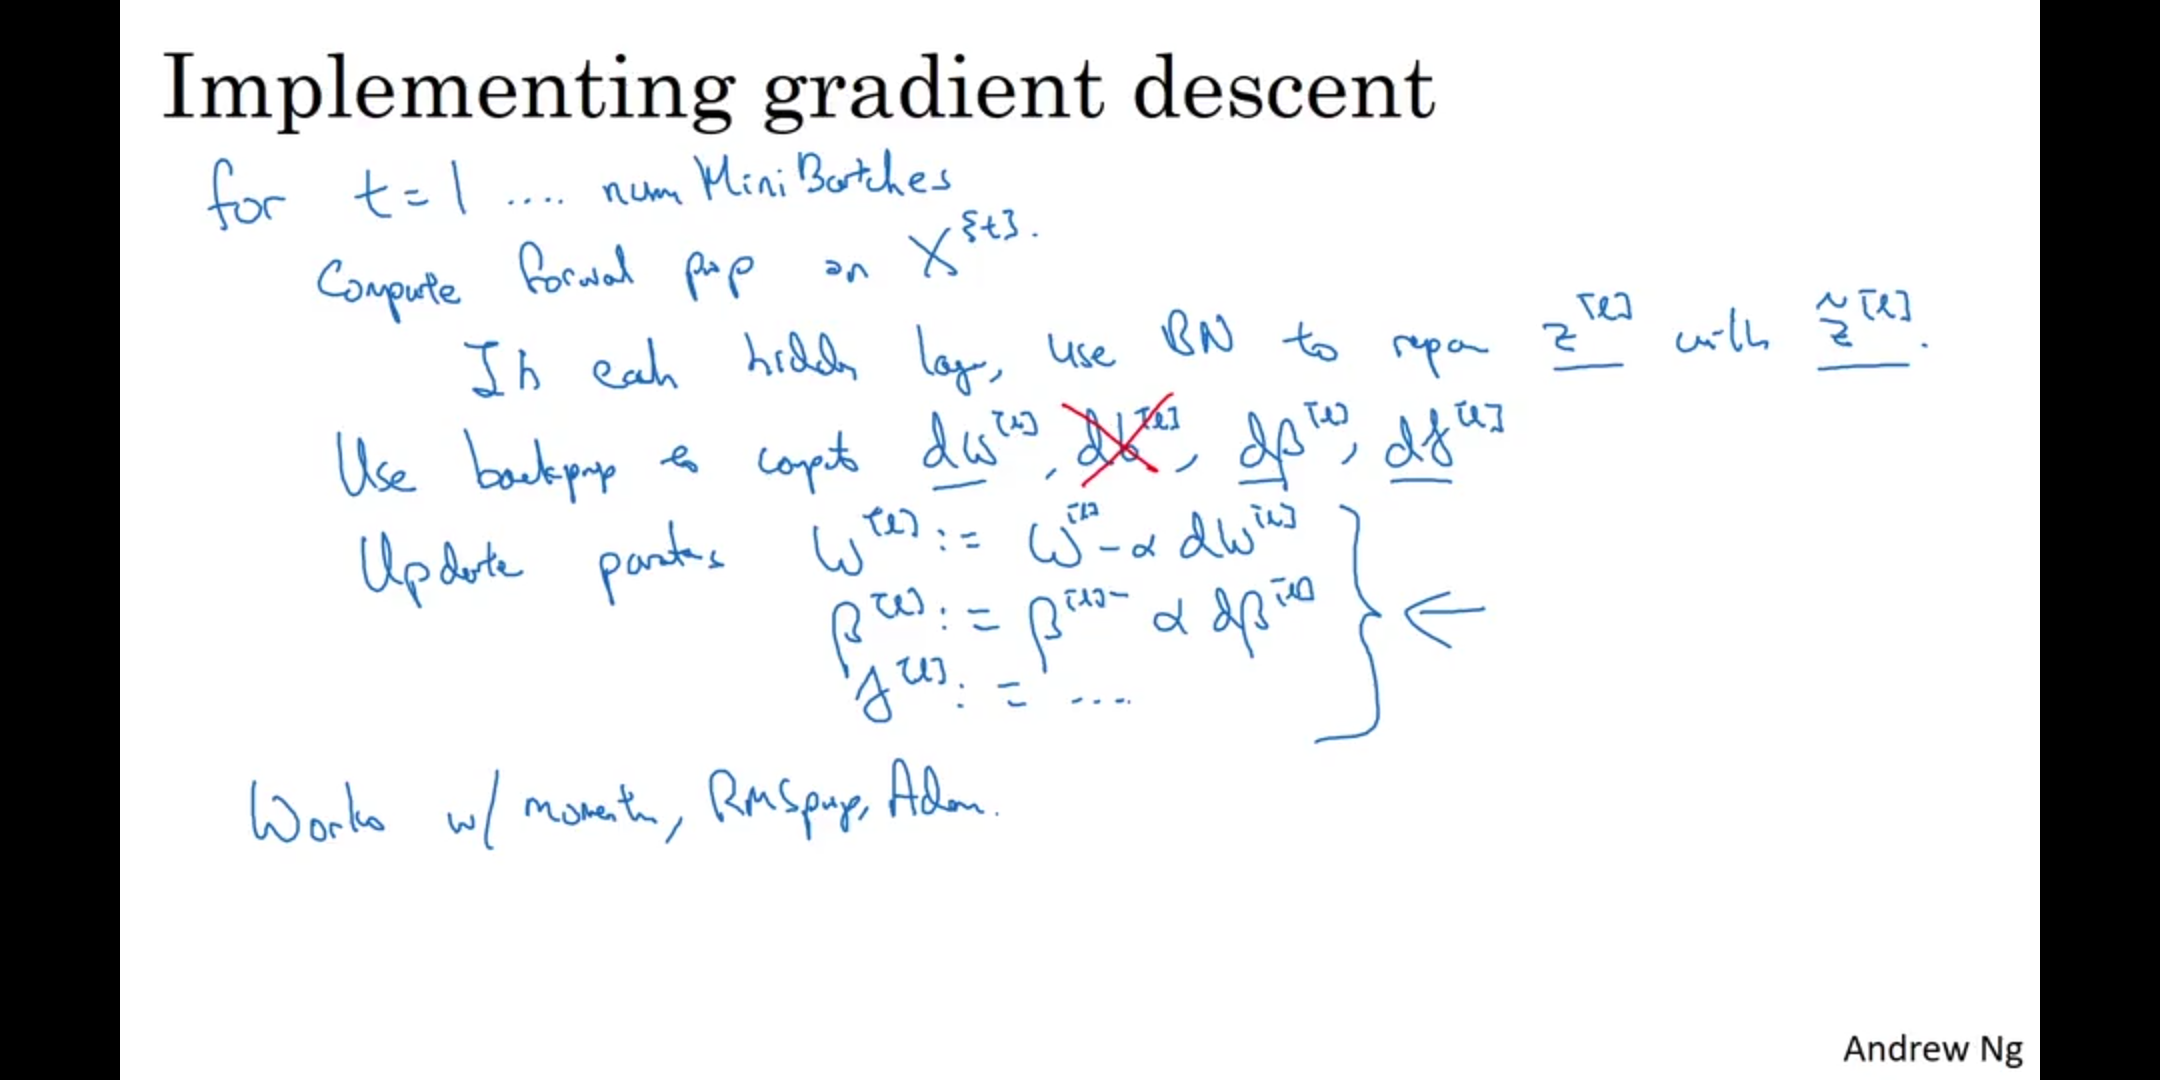 Implementing gradient descent
for t = 1 .... num MiniBatches
Compute forward prop on X^{t}.
In each hidden layer, use BN to replace z^[l] with z̃^[l].
Use backprop to compute dw^[l], db^[l], dβ^[l], dγ^[l]
Update parameters W^[l] := W^[l] - α dW^[l]
β^[l] := β^[l] - α dβ^[l]
γ^[l] := ....
Works w/ momentum, RMSprop, Adam.
Andrew Ng